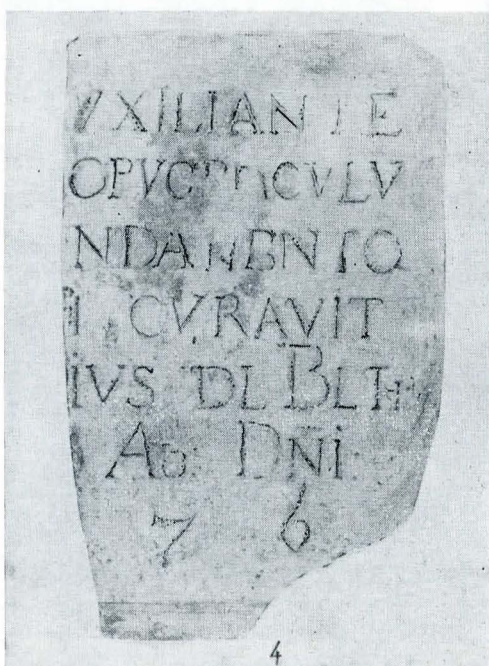 VXILIANTE
CVLV
NDAMENTO
I CVRAVIT
IVS DL
AD DNI
7 6
4